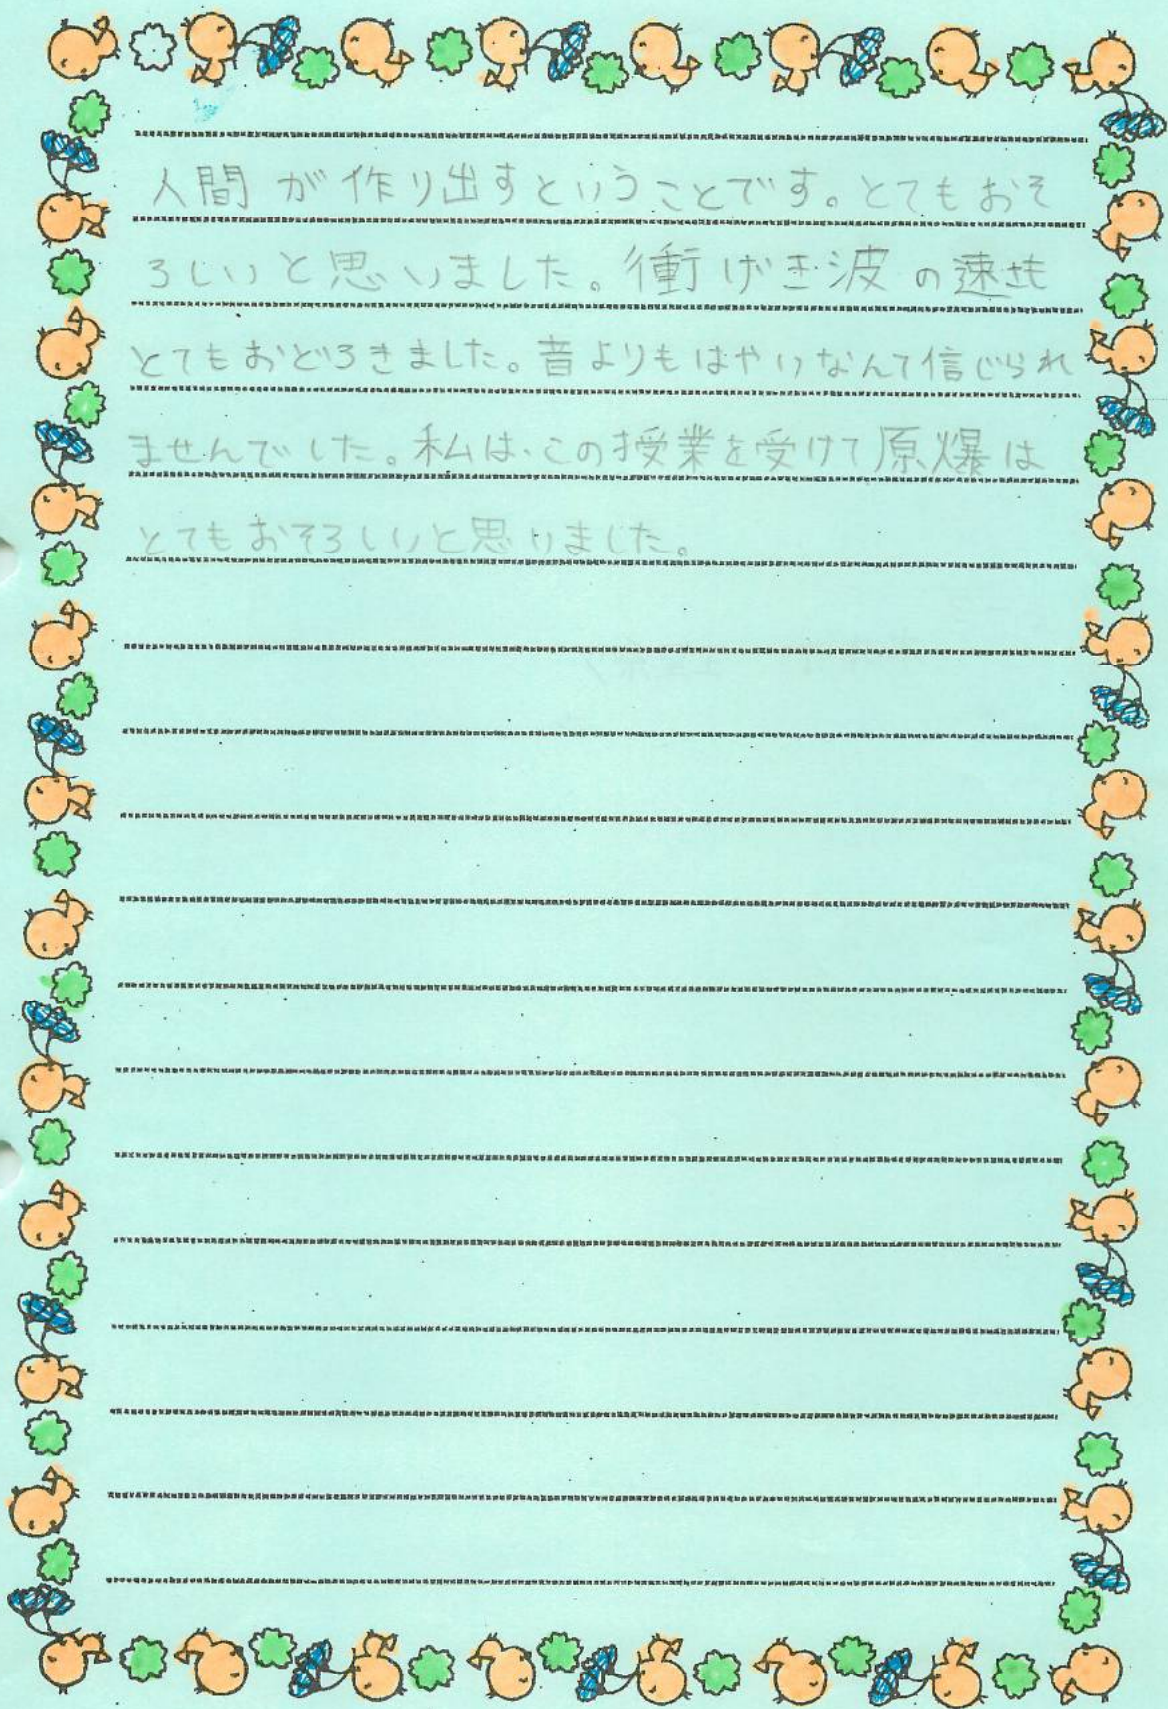 人間が作り出すということです。とてもおそ
ろしいと思いました。衝げき波の速さも
とてもおどろきました。音よりもはやいなんて信じられ
ませんでした。私は、この授業を受けて原爆は
とてもおそろしいと思いました。